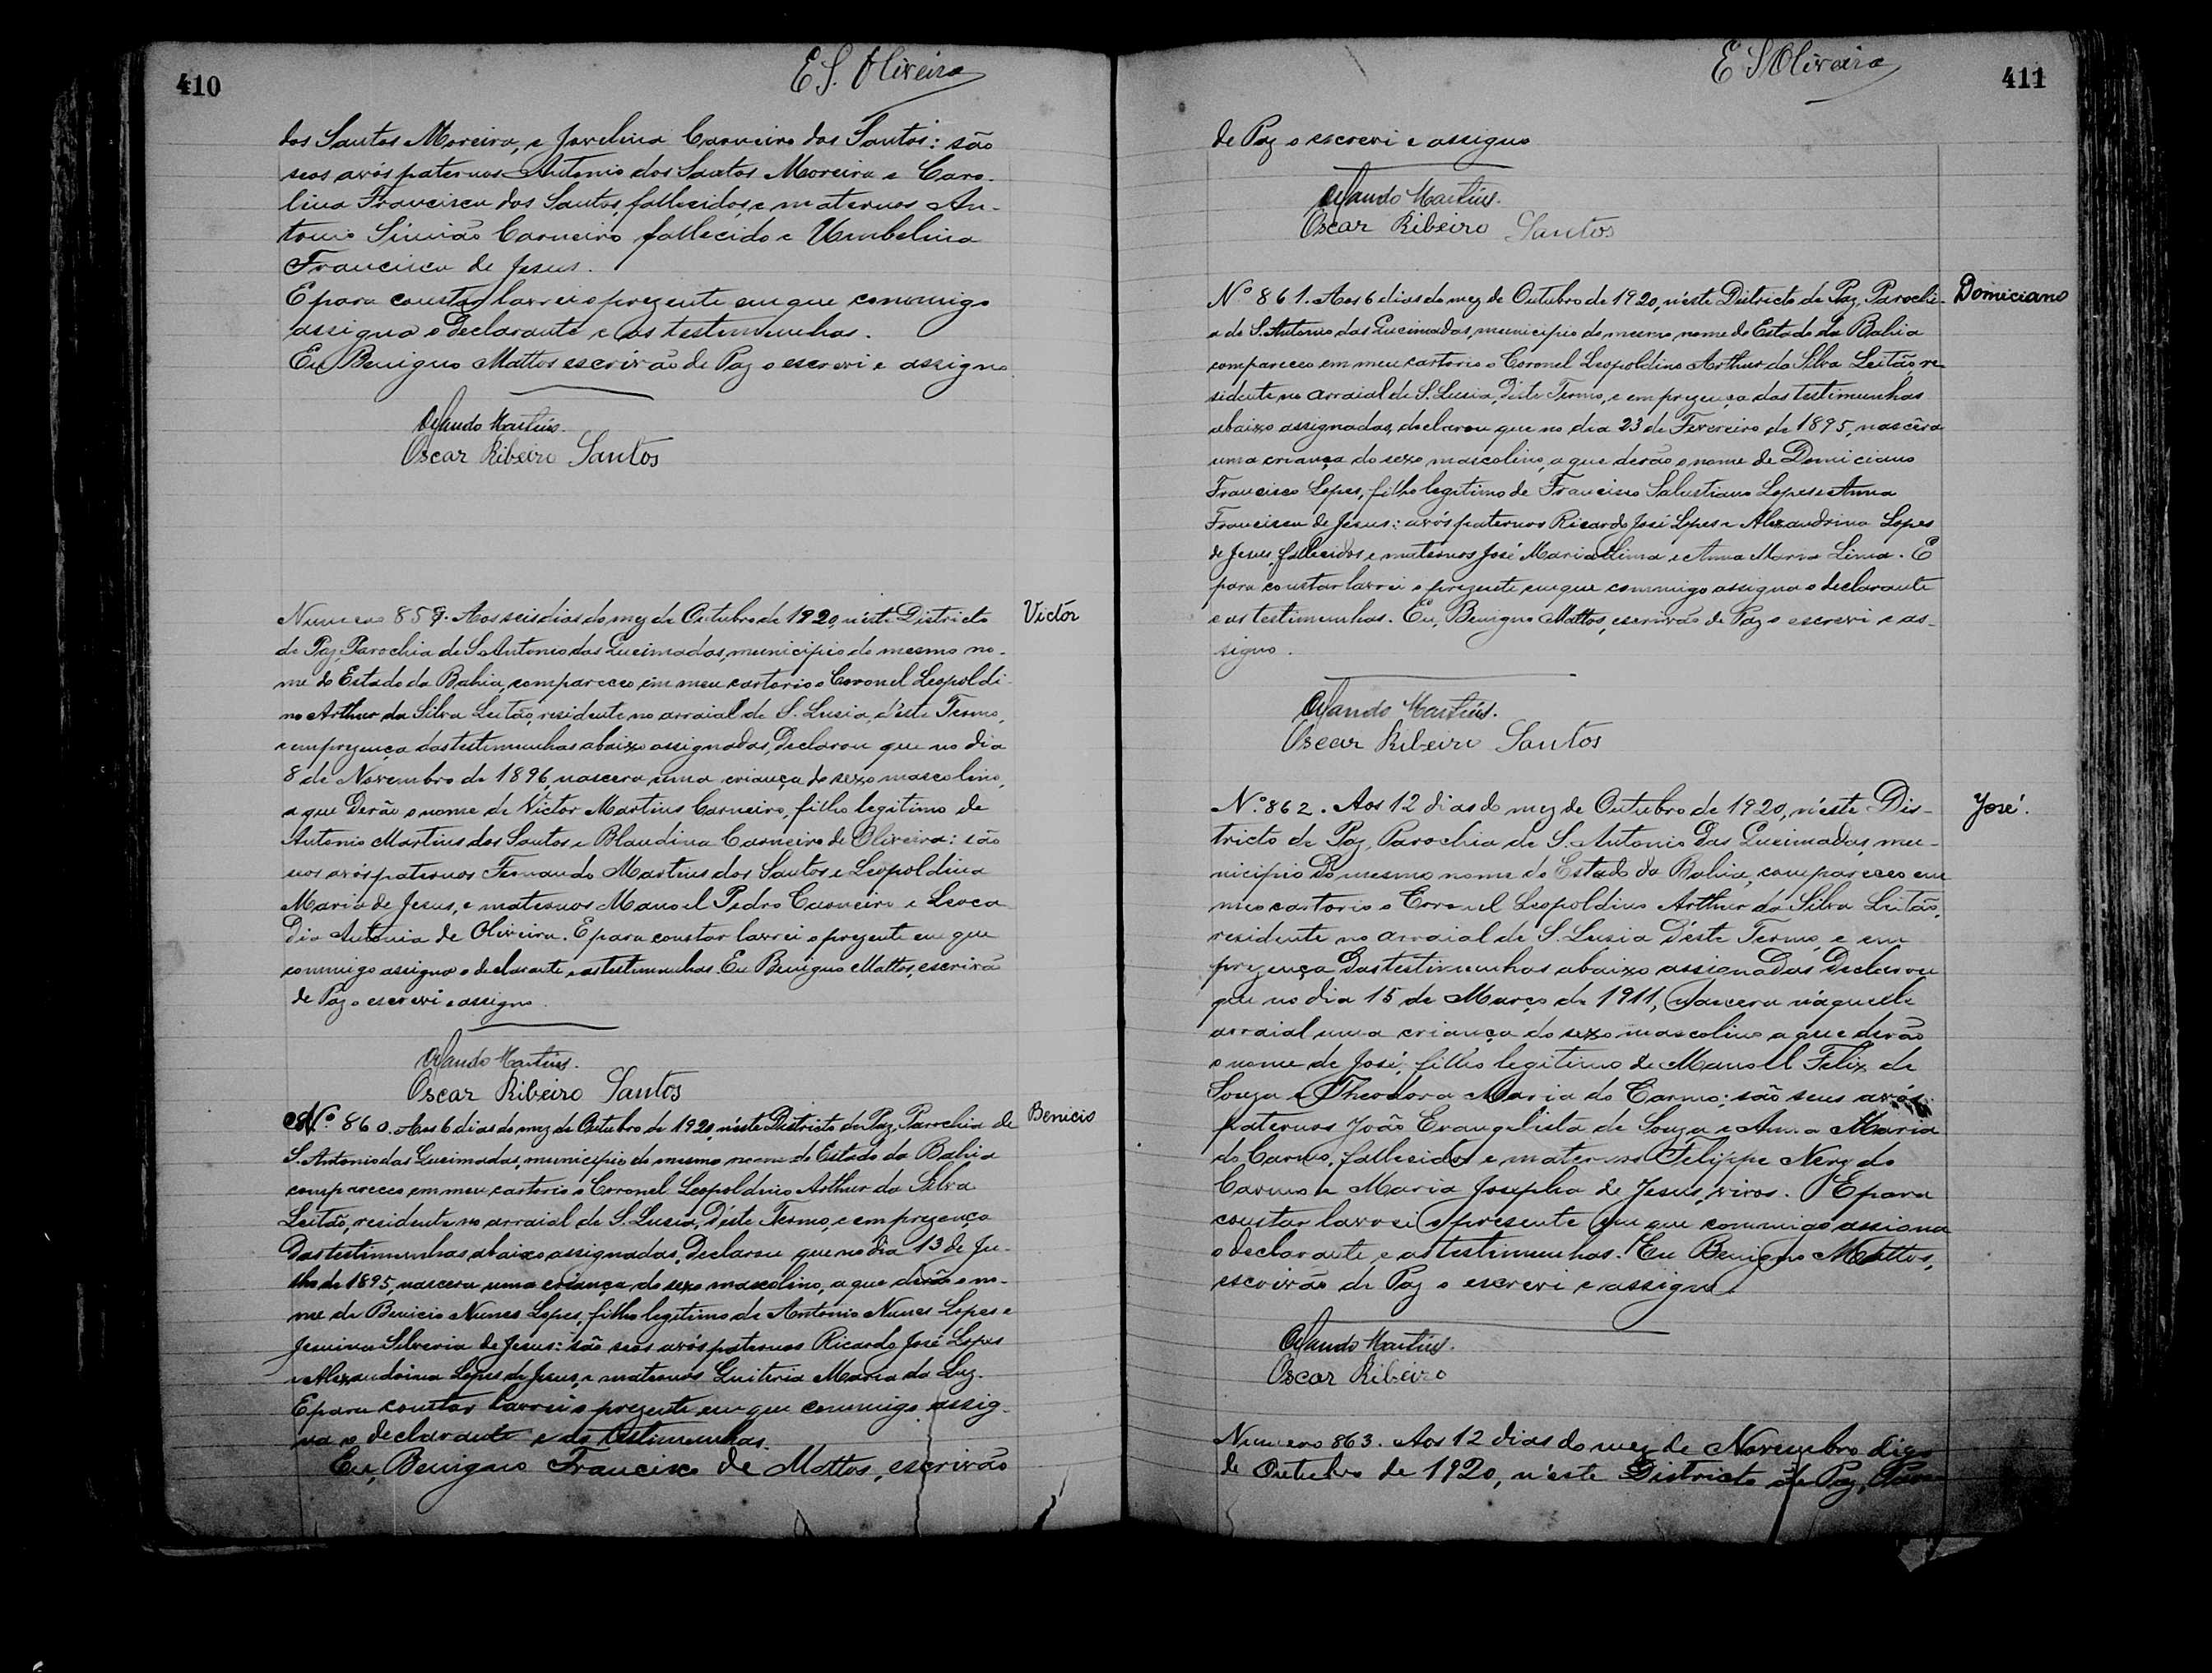 410
E S. Oliveira
dos Santos Moreira, e Jovelina Carneiro dos Santos: são
seos avós paternos Antonio dos Santos Moreira e Caro-
lina Francisca dos Santos, fallecidos, e maternos An-
tonio Simião Carneiro, fallecido e Umbelina
Francisca de Jesus.
E para constar lavrei o prezente em que conomigo
assigna o declarante e as testimunhas.
Eu Benigno Mattos escrivão de Paz o escrevi e assigno
Orlando Martins.
Oscar Ribeiro Santos
Victor
Numero 859. Aos seis dias do mez de Outubro de 1920, n'este Districto
de Paz, Parochia de S. Antonio das Queimadas, municipio do mesmo no-
me do Estado da Bahia, compareceo em meu cartorio o Coronel Leopoldi-
no Arthur da Silva Leitão, residente no arraial de S. Lusia, d'este Termo,
e em prezença das testimunhas abaixo assignadas, declarou que no dia
8 de Novembro de 1896, nascera uma criança do sexo mascolino,
a que derão o nome de Victor Martins Carneiro, filho legitimo de
Antonio Martins dos Santos e Blandina Carneiro de Oliveira: são
seos avós paternos Fernando Martins dos Santos e Leopoldina
Maria de Jesus, e maternos Manoel Pedro Carneiro e Leoca
dia Antonia de Oliveira. E para constar lavrei o prezente em que
commigo assigna o declarante e as testimunhas. Eu Benigno Mattos, escrivão
de Paz o escrevi e assigno.
Orlando Martins.
Oscar Ribeiro Santos
Benicio
Nº 860. Aos 6 dias do mez de Outubro de 1920, n'este Districto de Paz, Parochia de
S. Antonio das Queimadas, municipio do mesmo nome do Estado da Bahia
compareceo em meu cartorio o Coronel Leopoldino Arthur da Silva
Leitão, residente no arraial de S. Lusia, d'este Termo, e em prezença
das testimunhas abaixo assignadas, declarou que no dia 13 de Ju-
lho de 1895, nascera uma criança do sexo mascolino, a que derão o no-
me de Benicio Nunes Lopes, filho legitimo de Antonio Nunes Lopes e
Jesuina Silveria de Jesus: são seos avós paternos Ricardo José Lopes
e Alexandrina Lopes de Jesus, e maternos Quiteria Maria da Luz.
E para constar lavrei o prezente em que commigo assig-
na o declarante e as testimunhas.
Eu, Benigno Francisco de Mattos, escrivão
411
E S Oliveira
de Paz o escrevi e assigno
Orlando Martins.
Oscar Ribeiro Santos
Domiciano
Nº 861. Aos 6 dias do mez de Outubro de 1920, n'este Districto de Paz, Parochi-
a de S. Antonio das Queimadas, municipio do mesmo nome do Estado da Bahia
compareceo em meu cartorio o Coronel Leopoldino Arthur da Silva Leitão, re-
sidente no arraial de S. Lusia, d'este Termo, e em prezença das testimunhas
abaixo assignadas, declarou que no dia 23 de Fevereiro de 1895, nascêra
uma criança do sexo mascolino, a que derão o nome de Domiciano
Francisco Lopes, filho legitimo de Francisco Salustiano Lopes e Anna
Francisca de Jesus: avós paternos Ricardo José Lopes e Alexandrina Lopes
de Jesus, fallecidos e maternos José Maria Lima e Anna Maria Lima. E
para constar lavrei o prezente em que commigo assigna o declarante
e as testimunhas. Eu, Benigno Mattos, escrivão de Paz o escrevi e as-
signo.
Orlando Martins.
Oscar Ribeiro Santos
José.
Nº 862. Aos 12 dias do mez de Outubro de 1920, n'este Dis-
tricto de Paz, Parochia de S. Antonio das Queimadas, mu-
nicipio do mesmo nome do Estado da Bahia, compareceo em
meo cartorio o Coronel Leopoldino Arthur da Silva Leitão,
residente no arraial de S. Lusia d'este Termo, e em
prezença das testimunhas abaixo assignadas declarou
que no dia 15 de Março de 1911, nascera n'aquelle
arraial uma criança do sexo mascolino a que derão
o nome de José, filho legitimo de Manoel Felix de
Souza e Theodora Maria do Carmo; são seus avós
paternos João Evangelista de Souza e Anna Maria
do Carmo, fallecidos e maternos Felippe Nery do
Carmo e Maria Josepha de Jesus, vivos. E para
constar lavrei o presente em que commigo assigna
o declarante e as testimunhas. Eu Benigno Mattos,
escrivão de Paz o escrevi e assigno.
Orlando Martins.
Oscar Ribeiro
Numero 863. Aos 12 dias do mez de Novembro digo
de Outubro de 1920, n'este Districto de Paz, Paro-